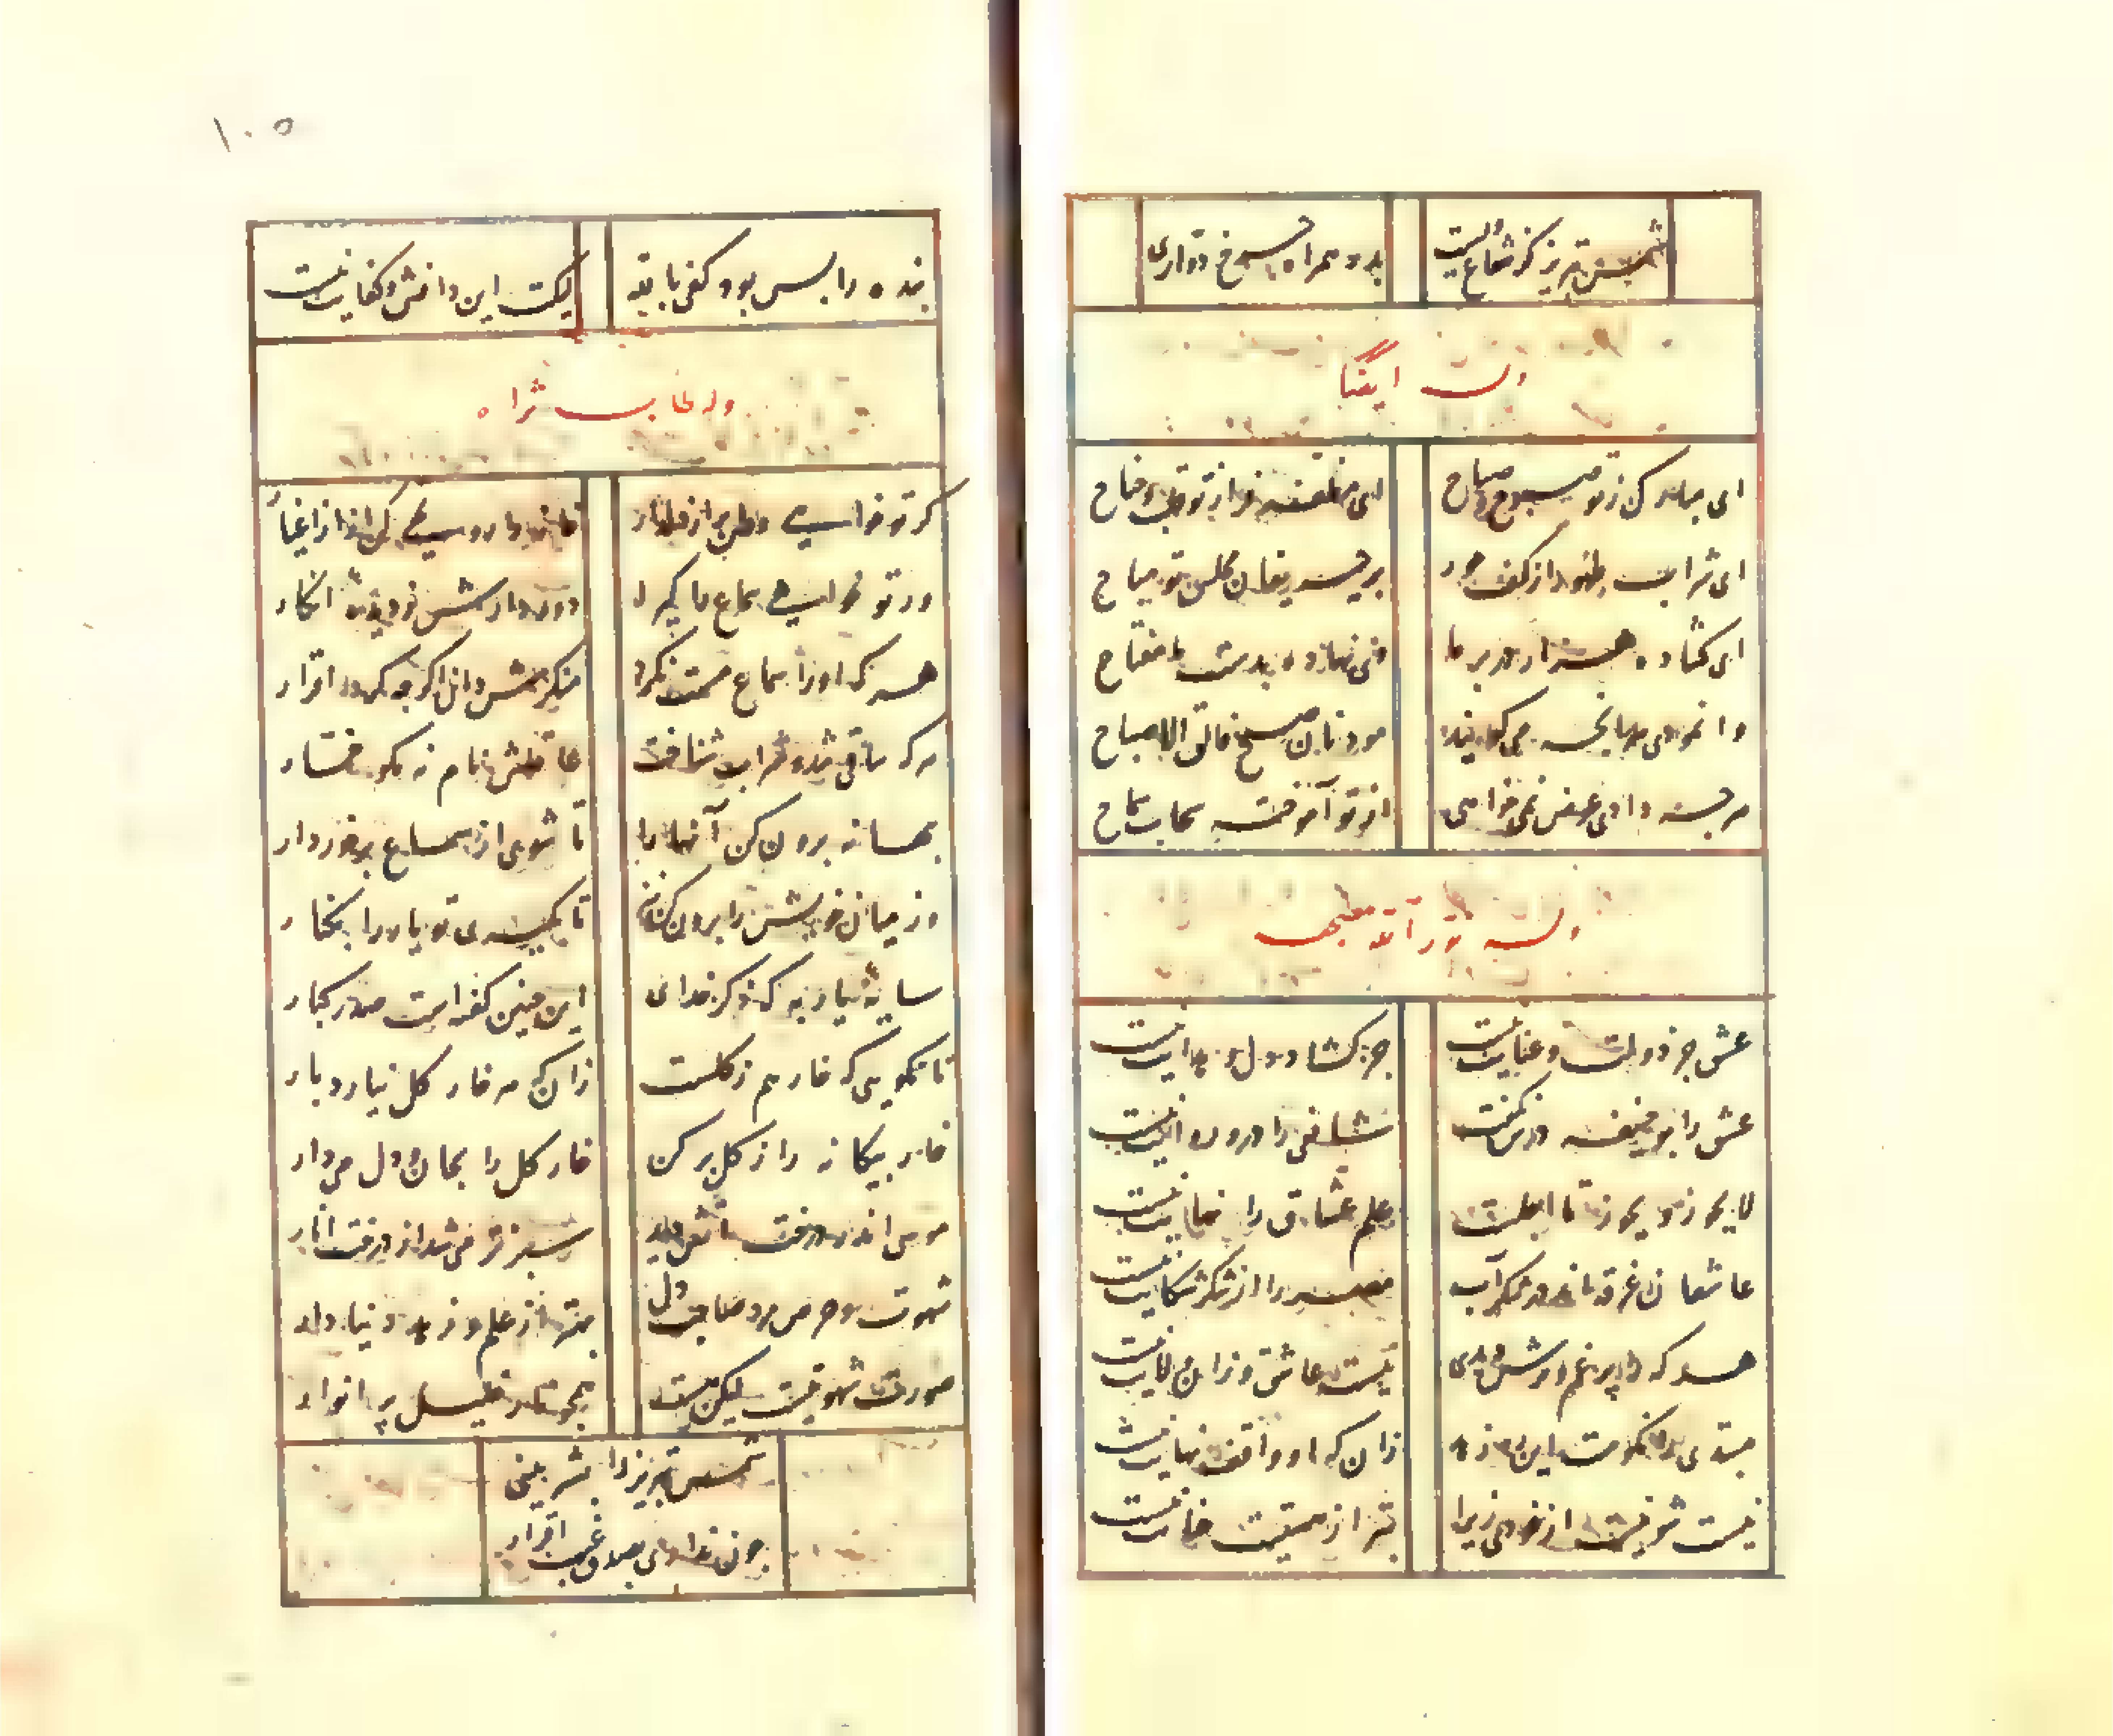 شمس تبریز کز شعاع ویست بدر همراه چرخ دواری
وله ایضا
ای مبارک ز تو صبوح و صباح ای مظفر فر از تو قلب و جناح
ای شراب طهور از کف حور بر حریفان مجلس تو مباح
ای گشاده هزار در بر ما وی نهاده بدست ما مفتاح
وا نمودی هر آنچه می‌گویند مؤذنان صبح فالق الاصباح
هرچه دادی عوض نمی‌خواهی از تو آموخت سحاب سماح
وله نور الله مضجعه
عشق جز دولت و عنایت نیست جز گشاد دل و هدایت نیست
عشق را بو حنیفه درس نگفت شافعی را درو روایت نیست
لا یجوز و یجوز تا اجلست علم عشاق را نهایت نیست
عاشقان غرقه‌اند در شکرآب مصر را از شکر شکایت نیست
هر که را پر غم و ترش دیدی نیست عاشق وزان ولایت نیست
مبتدی را نکوست این ره زانکه او واقف نهایت نیست
نیست شو نیست از خودی زیرا بتر از هستیت جنایت نیست
بنده را بس بود کفی بالله لیکت این دانش و کفایت نیست
۱۰۵
وله طاب ثراه
گر تو خواهی وطن پر از دلدار خانه را رو تهی کن از اغیار
ور تو خواهی سماع را گیرا دور دارش ز دیده انکار
هر که او را سماع مست نکرد منکرش دان اگر چه کرد اقرار
هر که ساقی شد و شراب شناخت عاقلش نام نه مگو خمار
بهانه برون کن آنها را تا شوی از سماع برخوردار
وز میان خویش را برون کن تا بگیری تو یار را بکنار
سایهٔ یار به که ذکر خدای این چنین گفته است صدر کبار
تا نگویی که خار هم ز گلست زانکه هر خار گل نیارد بار
خار بیگانه را ز گل بر کن خار گل را بجان و دل می‌دار
موسی اندر درخت آتش دید سبزتر می‌شد از درخت انار
شهوت و حرص مرد صاحب دل بهتر از علم و زهد دنیادار
صورت شهوتست لیکن هست همچو نار خلیل پر انوار
شمس تبریز را بشر بینی
چون گشادی دو چشم غیب اقرار